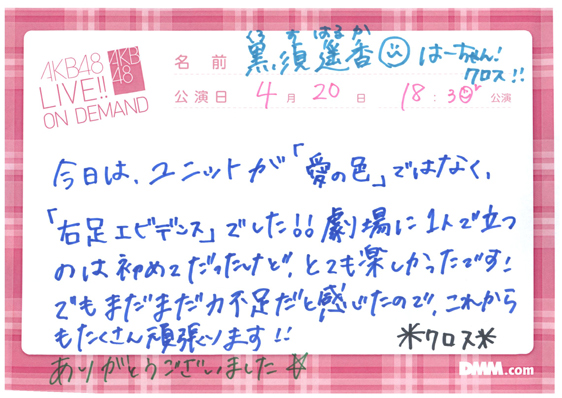 くろ す はるか
AKB48
LIVE!!
ON DEMAND
AKB
48
名前 黒須遥香 はーちゃん!
クロス!!
公演日 4月20日 18:30公演
今日は、ユニットが「愛の色」ではなく、
「右足エビデンス」でした!!劇場に1人で立つ
のは初めてだったけど、とても楽しかったです!
でもまだまだ力不足だと感じたので、これから
もたくさん頑張ります!!
*クロス*
ありがとうございました
DMM.com